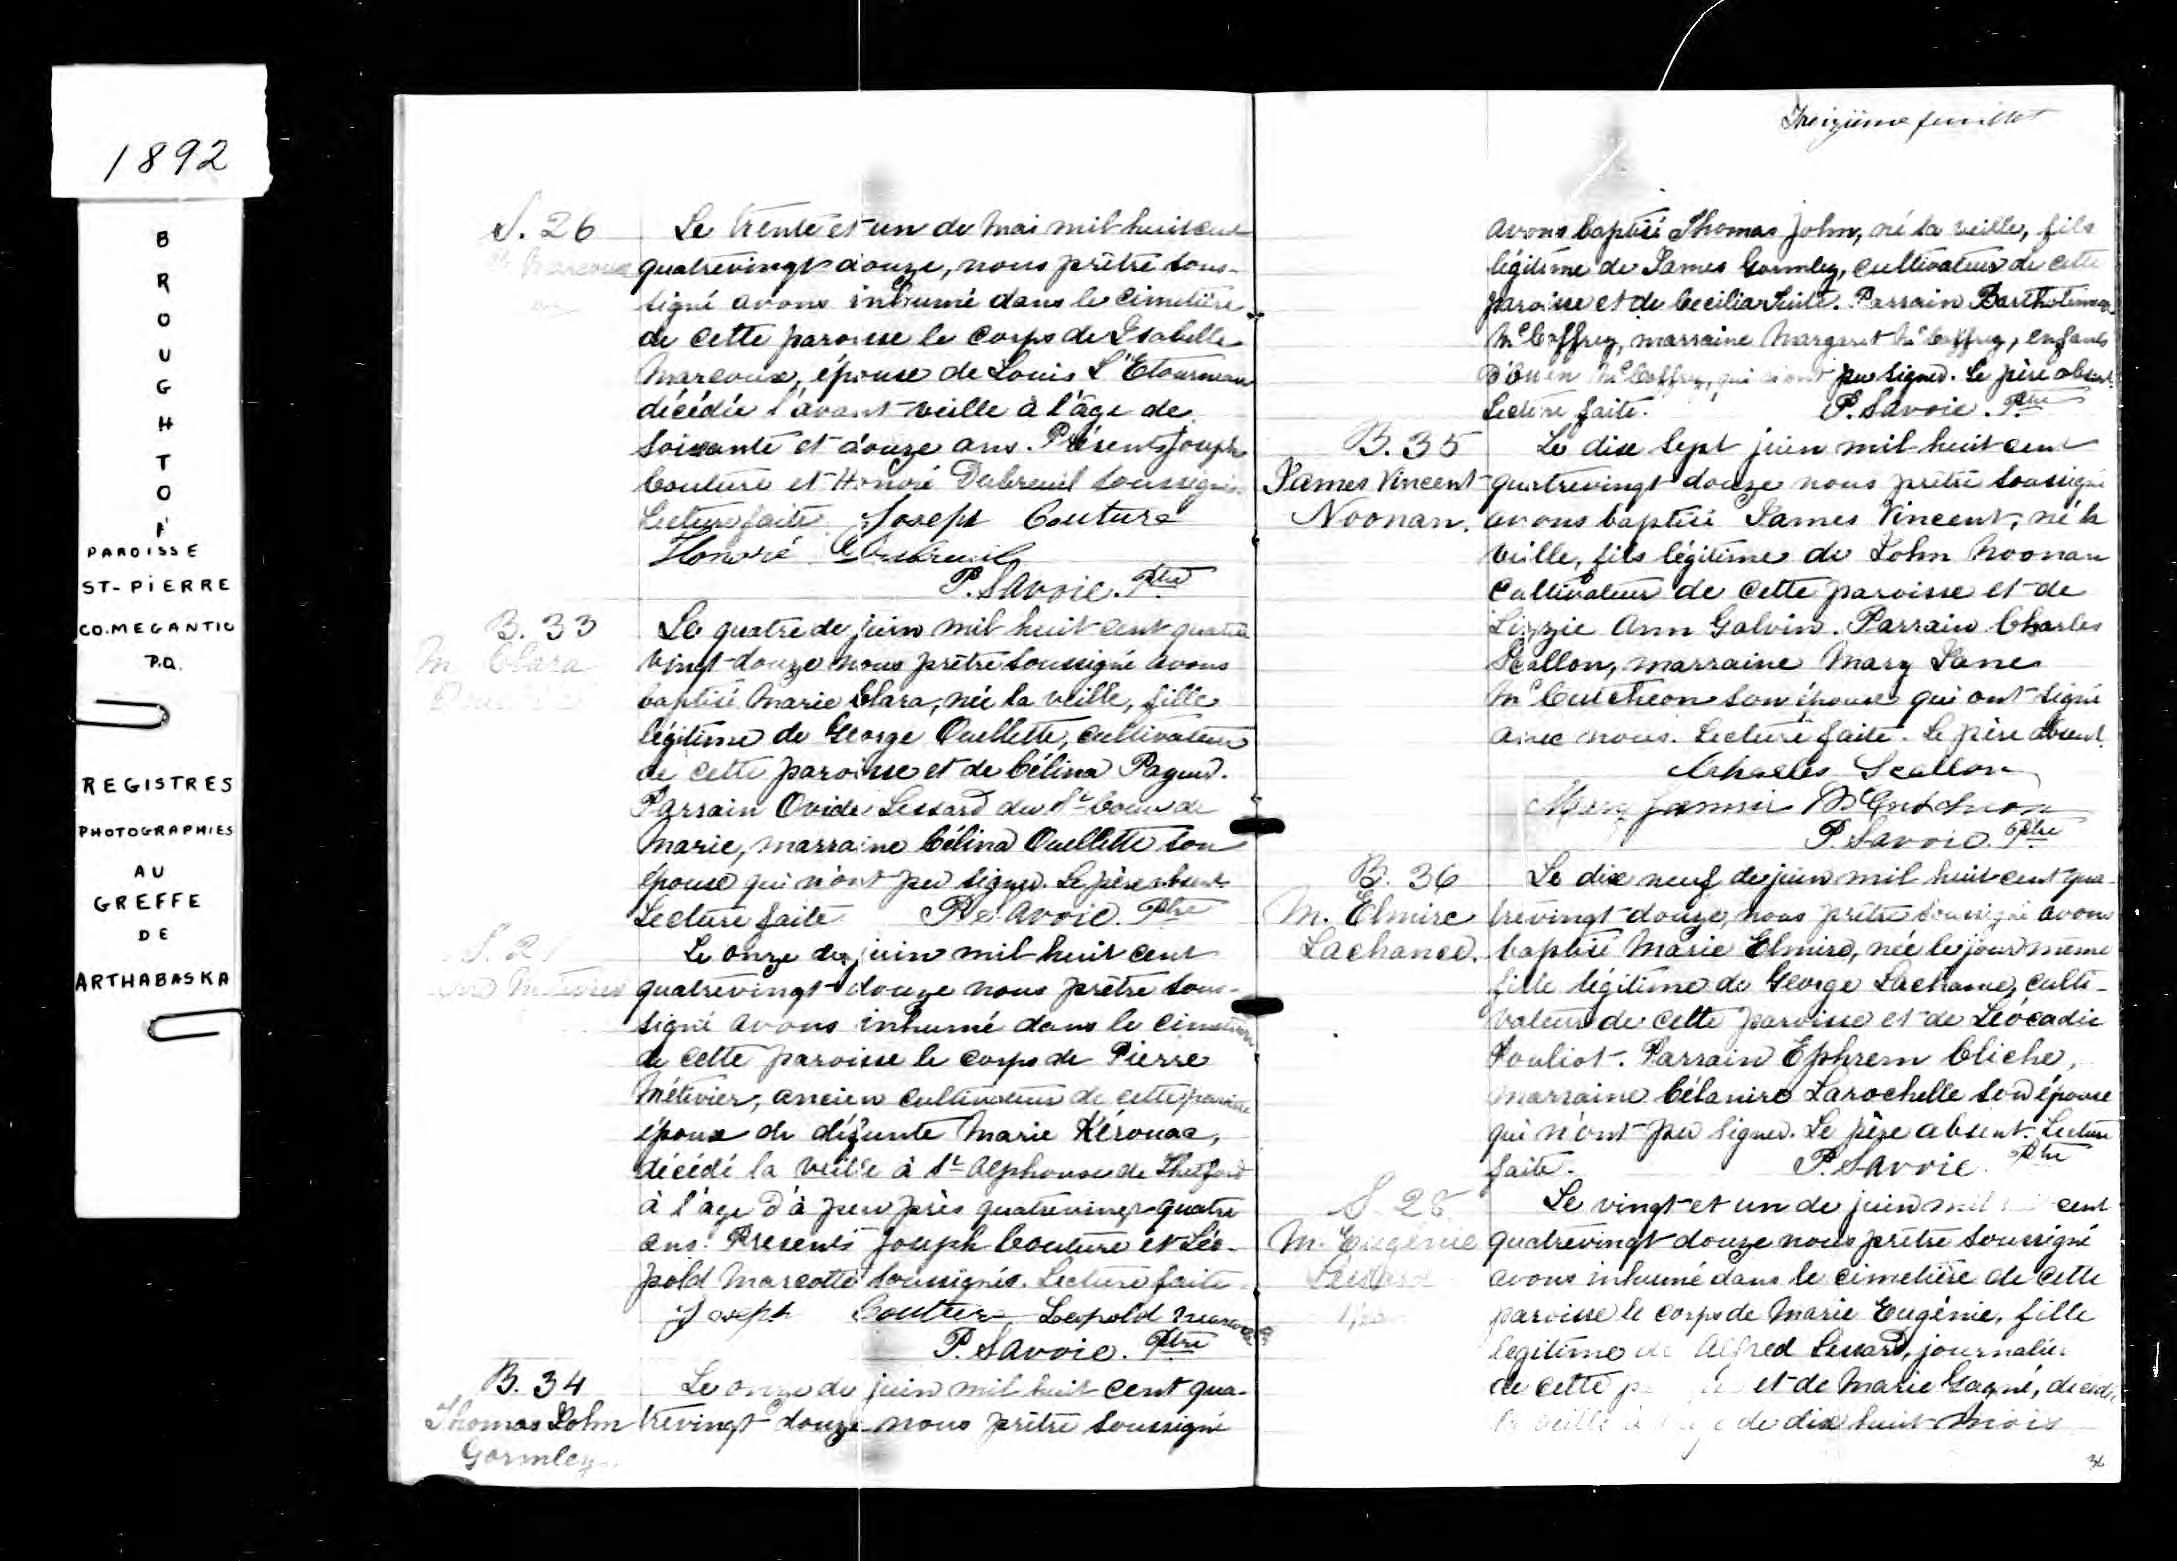 1892
BROUGHTON
PAROISSE
ST-PiERRE
CO.MEGANTIC
P.Q.
REGISTRES
PHOTOGRAPHIES
AU
GREFFE
DE
ARTHABASKA
S. 26
Marcoux
Le trente et un de Mai mil huit cent
quatrevingt douze, nous prêtre sous-
signé avons inhumé dans le cimetière
de cette paroisse le corps de Isabelle
Marcoux, épouse de Louis L'Etourneau
décédée l'avant-veille à l'âge de
soixante et douze ans. Présents Joseph
Couture et Honoré Dubreuil soussignés
Lecture faite Joseph Couture
Honoré Dubreuil
P. Savoie. Ptre
B. 33
M Clara
Le quatre de juin mil huit cent quatre
vingt-douze nous prêtre soussigné avons
baptisé Marie Clara, née la veille, fille
légitime de George Ouellette, cultivateur
de cette paroisse et de Célina Paquet.
Parrain Ovide Lessard du St Coeur de
Marie, marraine Célina Ouellette son
épouse qui n'ont pu signer. Le père absent
Lecture faite P. Savoie. Ptre
S. 2
Métivier
Le onze de juin mil huit cent
quatrevingt-douze nous prêtre sous-
signé avons inhumé dans le cimetière
de cette paroisse le corps de Pierre
Métivier, ancien cultivateur de cette paroisse
époux de défunte Marie Kérouac,
décédé la veille à St Alphonse de Thetford
à l'âge d'à peu près quatrevingt-quatre
ans. Présents Joseph Couture et Léo-
pold Marcotte soussignés. Lecture faite
Joseph Couture Leopold Marcotte
P. Savoie. Ptre
B. 34
Thomas John
Gormley
Le onze de juin mil huit cent qua-
trevingt douze nous prêtre soussigné
Treizième feuillet
avons baptisé Thomas John, né la veille, fils
légitime de James Gormley, cultivateur de cette
paroisse et de Cecilia. Parrain Bartholemew
McCaffrey, marraine Margaret McCaffrey, enfants
d'Owen McCaffrey, qui n'ont pu signer. Le père absent.
Lecture faite. P. Savoie. Ptre
B. 35
James Vincent
Noonan.
Le dix sept juin mil huit cent
quatrevingt douze nous prêtre soussigné
avons baptisé James Vincent, né la
veille, fils légitime de John Noonan
cultivateur de cette paroisse et de
Lizzie Ann Galvin. Parrain Charles
Scallon, marraine Mary Jane
McCutcheon son épouse qui ont signé
avec nous. Lecture faite. Le père absent.
Charles Scallon
Mary Jannie McCutcheon
P. Savoie. Ptre
B. 36
M. Elmire
Lachance.
Le dix neuf de juin mil huit cent qua-
trevingt-douze, nous prêtre soussigné avons
baptisé Marie Elmire, née le jour même
fille légitime de George Lachance, culti-
vateur de cette paroisse et de Léocadie
Pouliot. Parrain Ephrem Cliche,
marraine Célanire Larochelle son épouse
qui n'ont pu signer. Le père absent. Lecture
faite. P. Savoie. Ptre
S. 28
M. Eugénie
Lessard
Le vingt et un de juin mil cent
quatrevingt douze nous prêtre soussigné
avons inhumé dans le cimetière de cette
paroisse le corps de Marie Eugénie, fille
légitime de Alfred Lessard, journalier
de cette et de Marie Gagné, décédée
la veille à l'âge de dix huit mois